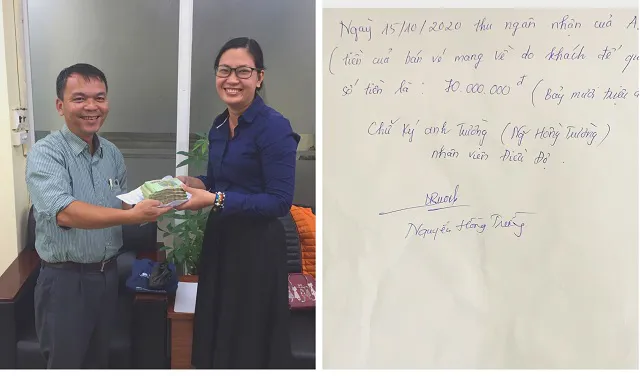 Ngày 15/10/2020 thu ngân nhận của A.
(tiền của bán vé mang về do khách để qu
số tiền là : 70.000.000 đ ( Bảy mươi triệu
Chữ ký anh Tường (Ng Hồng Tường)
nhân viên Điều Độ.
Nguyễn Hồng Tường